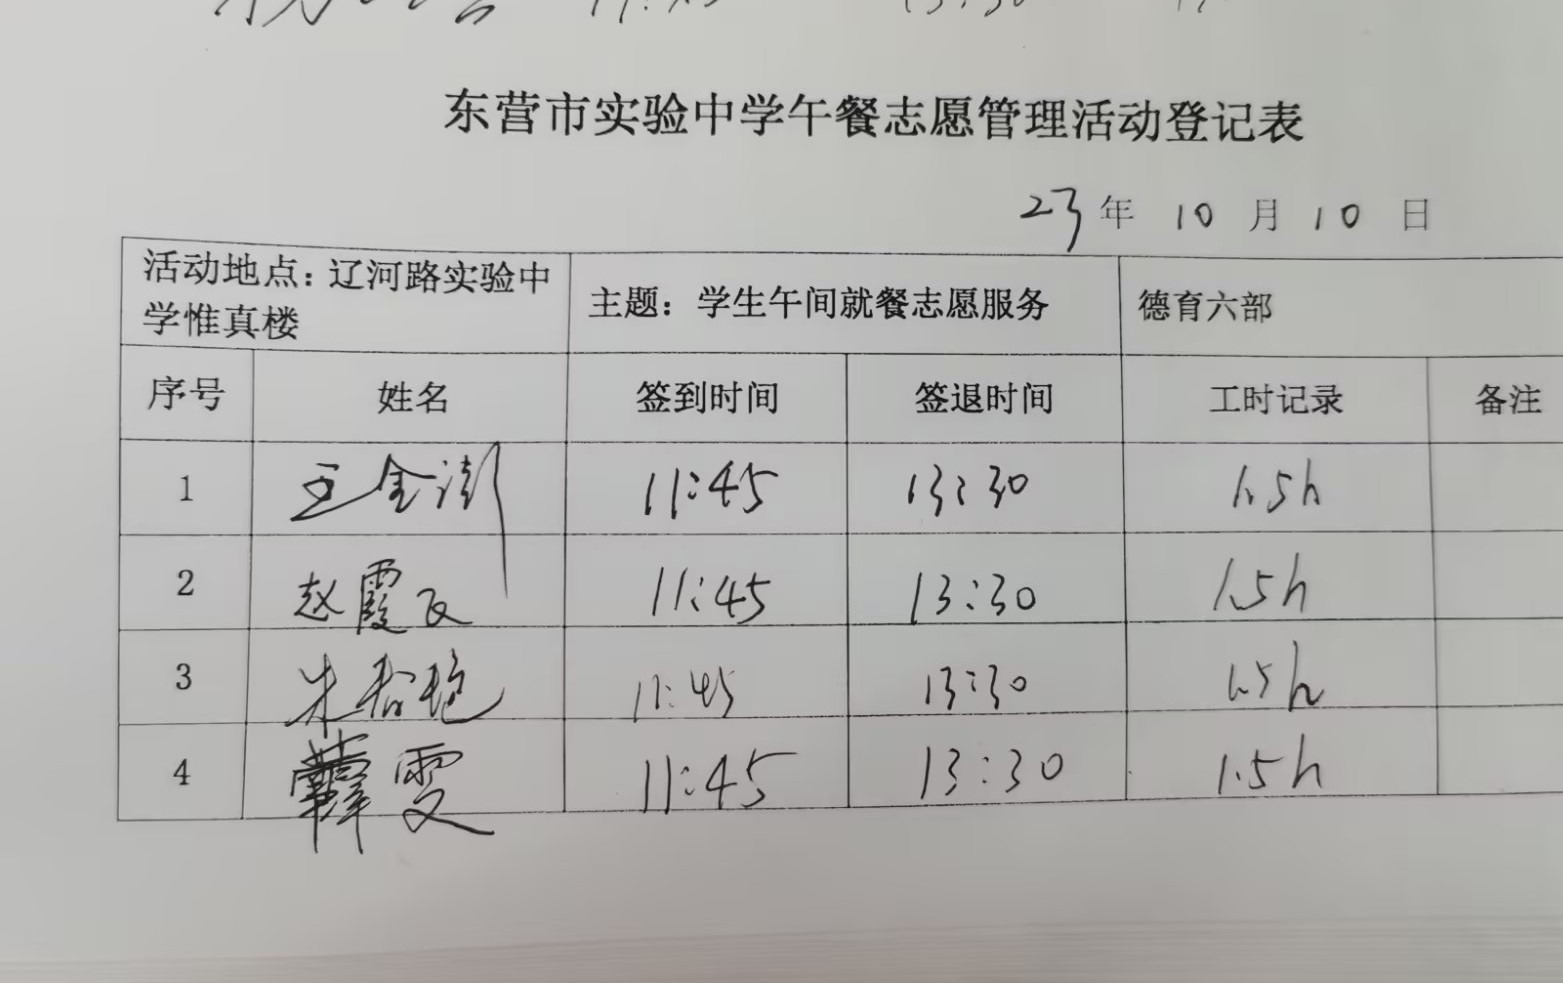 13:30
东营市实验中学午餐志愿管理活动登记表
23年 10 月 10 日
活动地点：辽河路实验中
学惟真楼
主题：学生午间就餐志愿服务
德育六部
序号 姓名 签到时间 签退时间 工时记录 备注
1 王金澎 11:45 13:30 1.5h
2 赵霞 11:45 13:30 1.5h
3 朱 11:45 13:30 1.5h
4 雯 11:45 13:30 1.5h